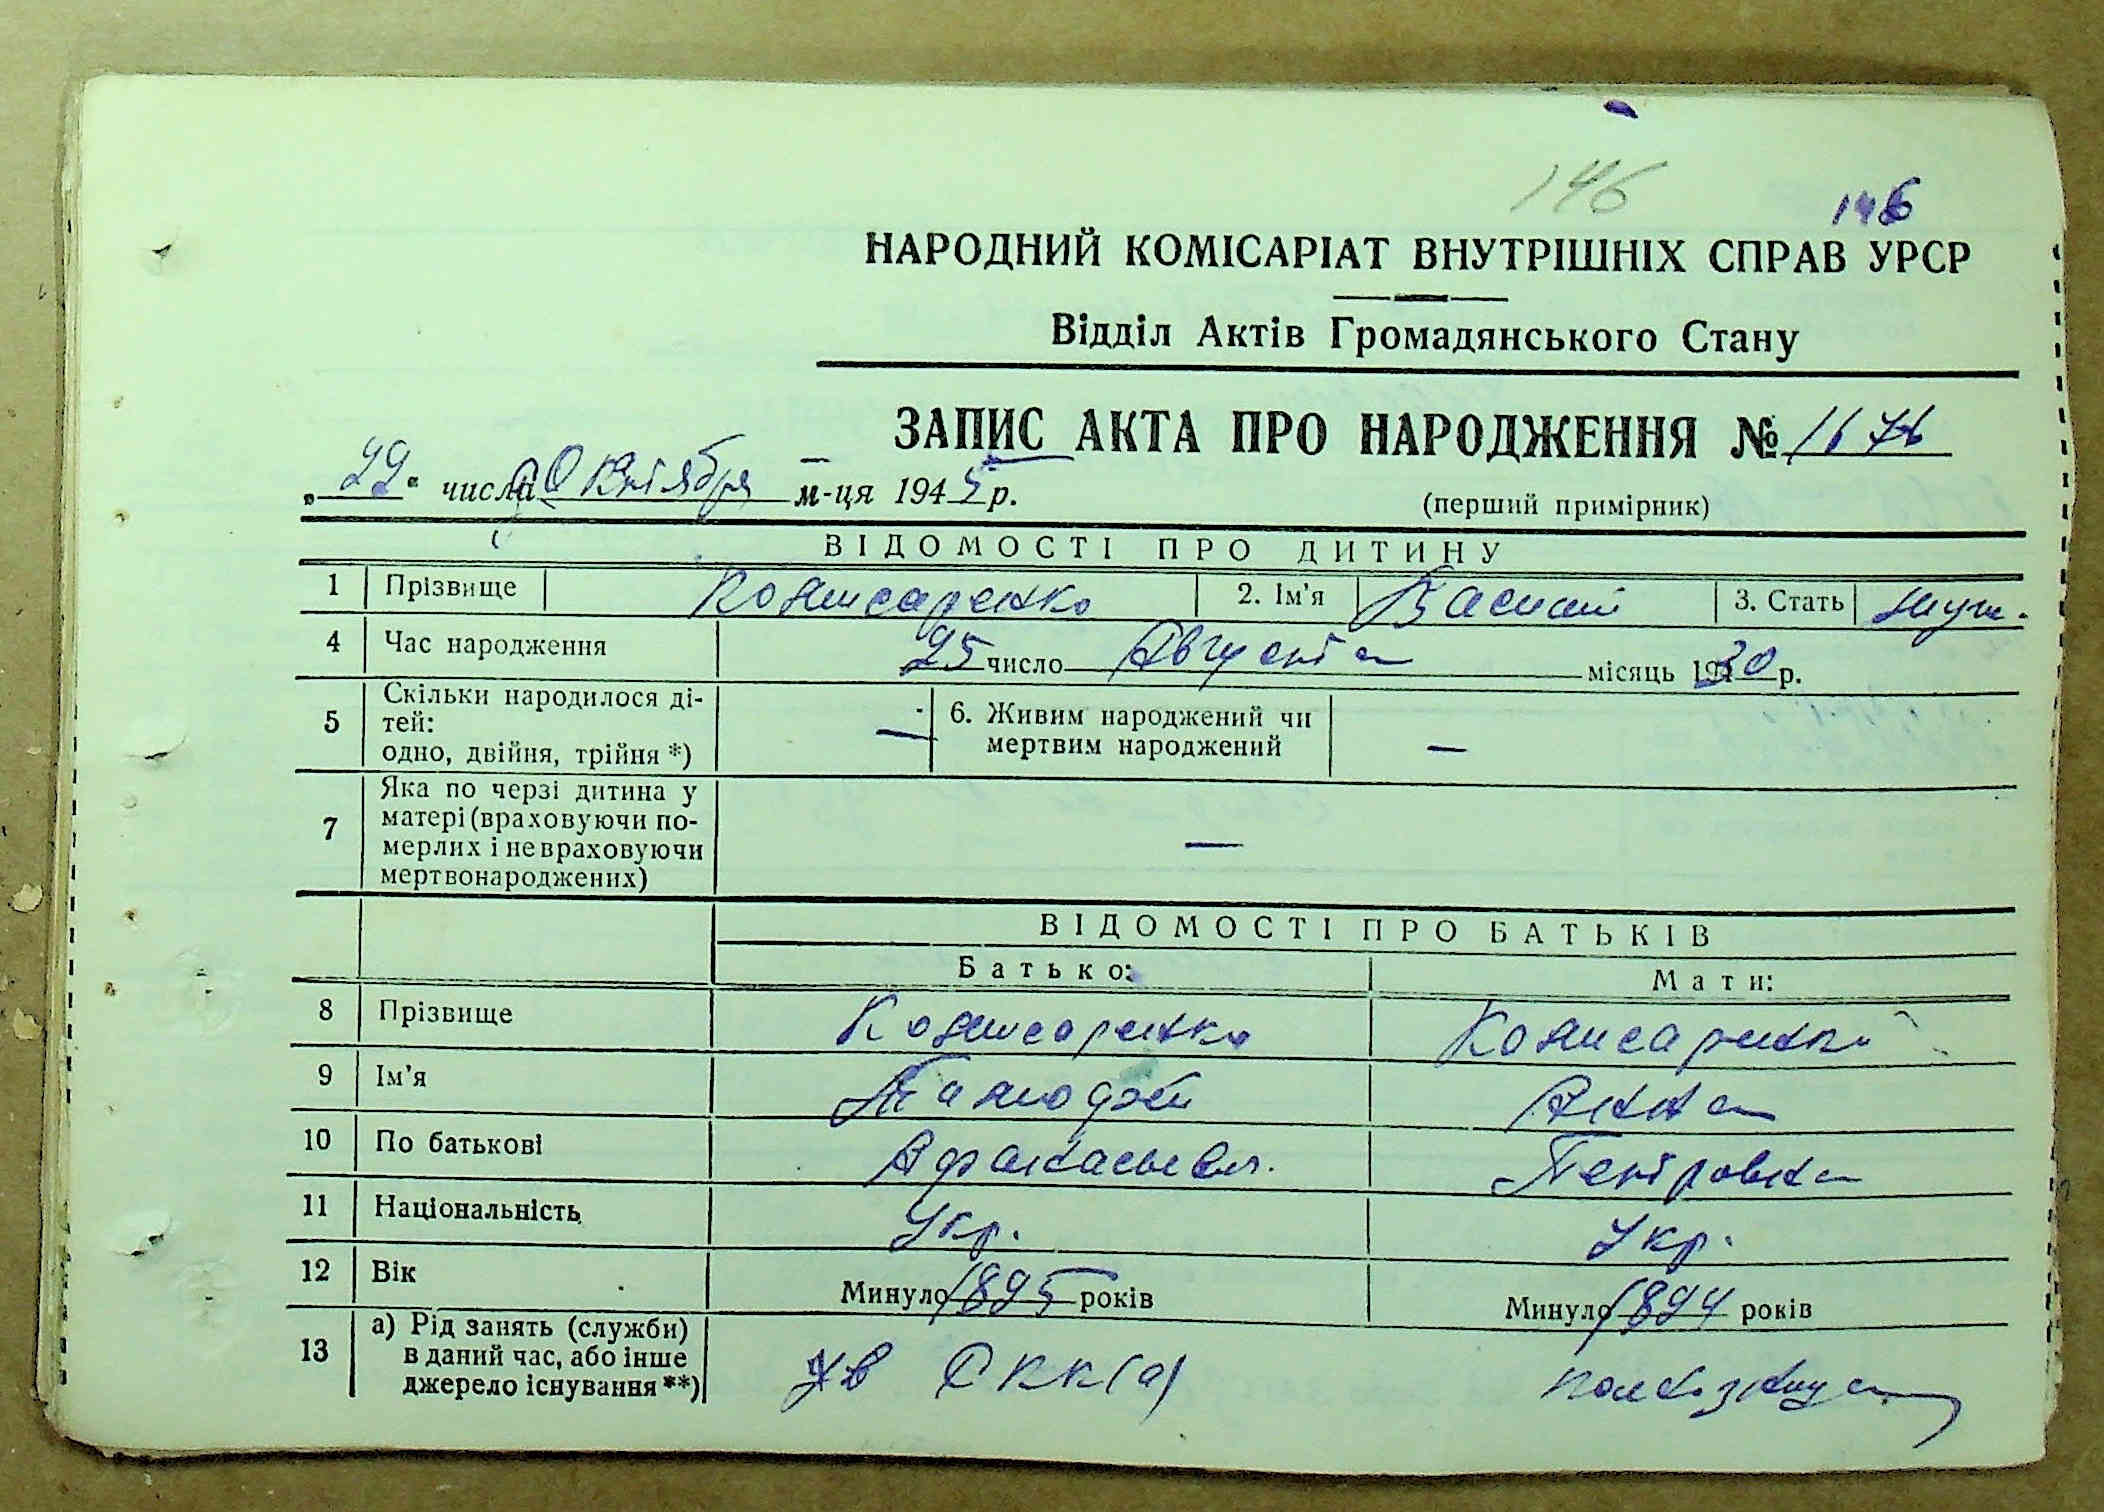 146
146
НАРОДНИЙ КОМІСАРІАТ ВНУТРІШНІХ СПРАВ УРСР
Відділ Актів Громадянського Стану
ЗАПИС АКТА ПРО НАРОДЖЕННЯ № 1676
„29“ числа Октября м-ця 1945 р.
(перший примірник)
ВІДОМОСТІ ПРО ДИТИНУ
1 Прізвище Комисаренко 2. Ім’я Василий 3. Стать муж.
4 Час народження 25 число Августа місяць 1930 р.
5 Скільки народилося ді-
тей:
одно, двійня, трійня *) —
6. Живим народжений чи
мертвим народжений —
7 Яка по черзі дитина у
матері (враховуючи по-
мерлих і невраховуючи
мертвонароджених) —
ВІДОМОСТІ ПРО БАТЬКІВ
Батько: Мати:
8 Прізвище Комисаренко Комисаренко
9 Ім’я Анна
10 По батькові Афанасьевич. Петровна
11 Національність Укр. Укр.
12 Вік Минуло 1895 років Минуло 1894 років
13 а) Рід занять (служби)
в даний час, або інше
джерело існування **)